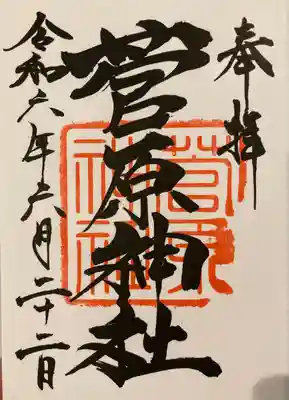 奉拝
菅原神社
菅原
神社
令和六年六月二十二日